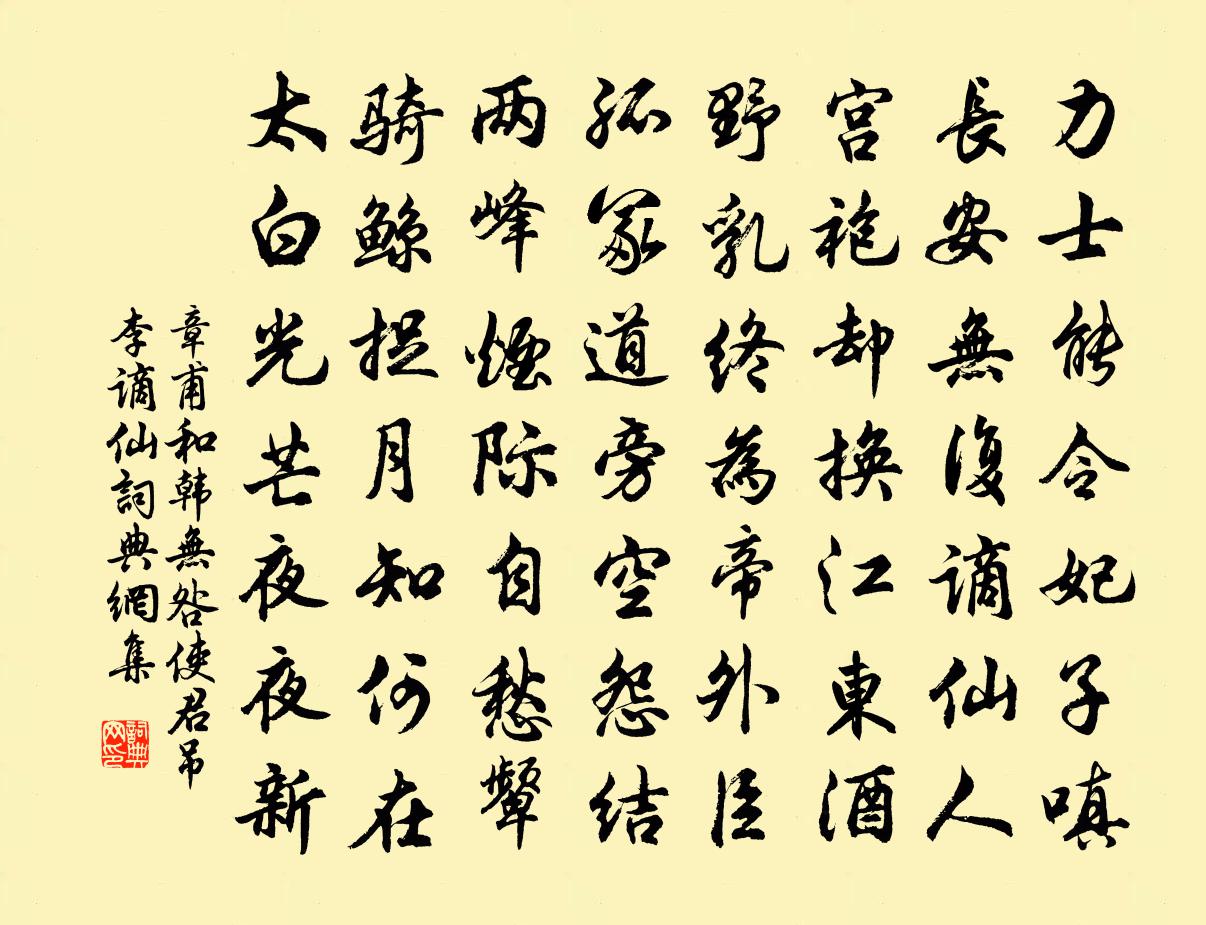 力士能令妃子嗔
長安無復謫仙人
宫袍却換江東酒
野乳終為帝外臣
孤冢道旁空怨结
两峰煙际自愁颦
騎鲸捉月知何在
太白光芒夜夜新
章甫和韩無咎使君吊
李謫仙詞典網集
詞典网印